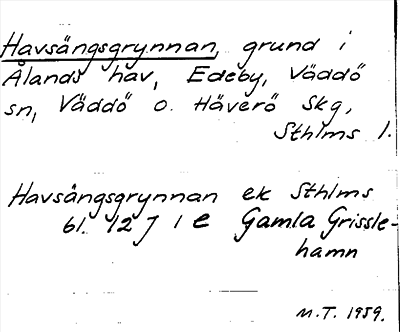 Havsängsgrynnan, grund i
Ålands hav, Edeby, Väddö
sn, Väddö o. Häverö Skg,
Sthlms l.
Havsångsgrynnan ek Sthlms
bl. 12 J 1 e Gamla Grissle-
hamn
M.T. 1959.